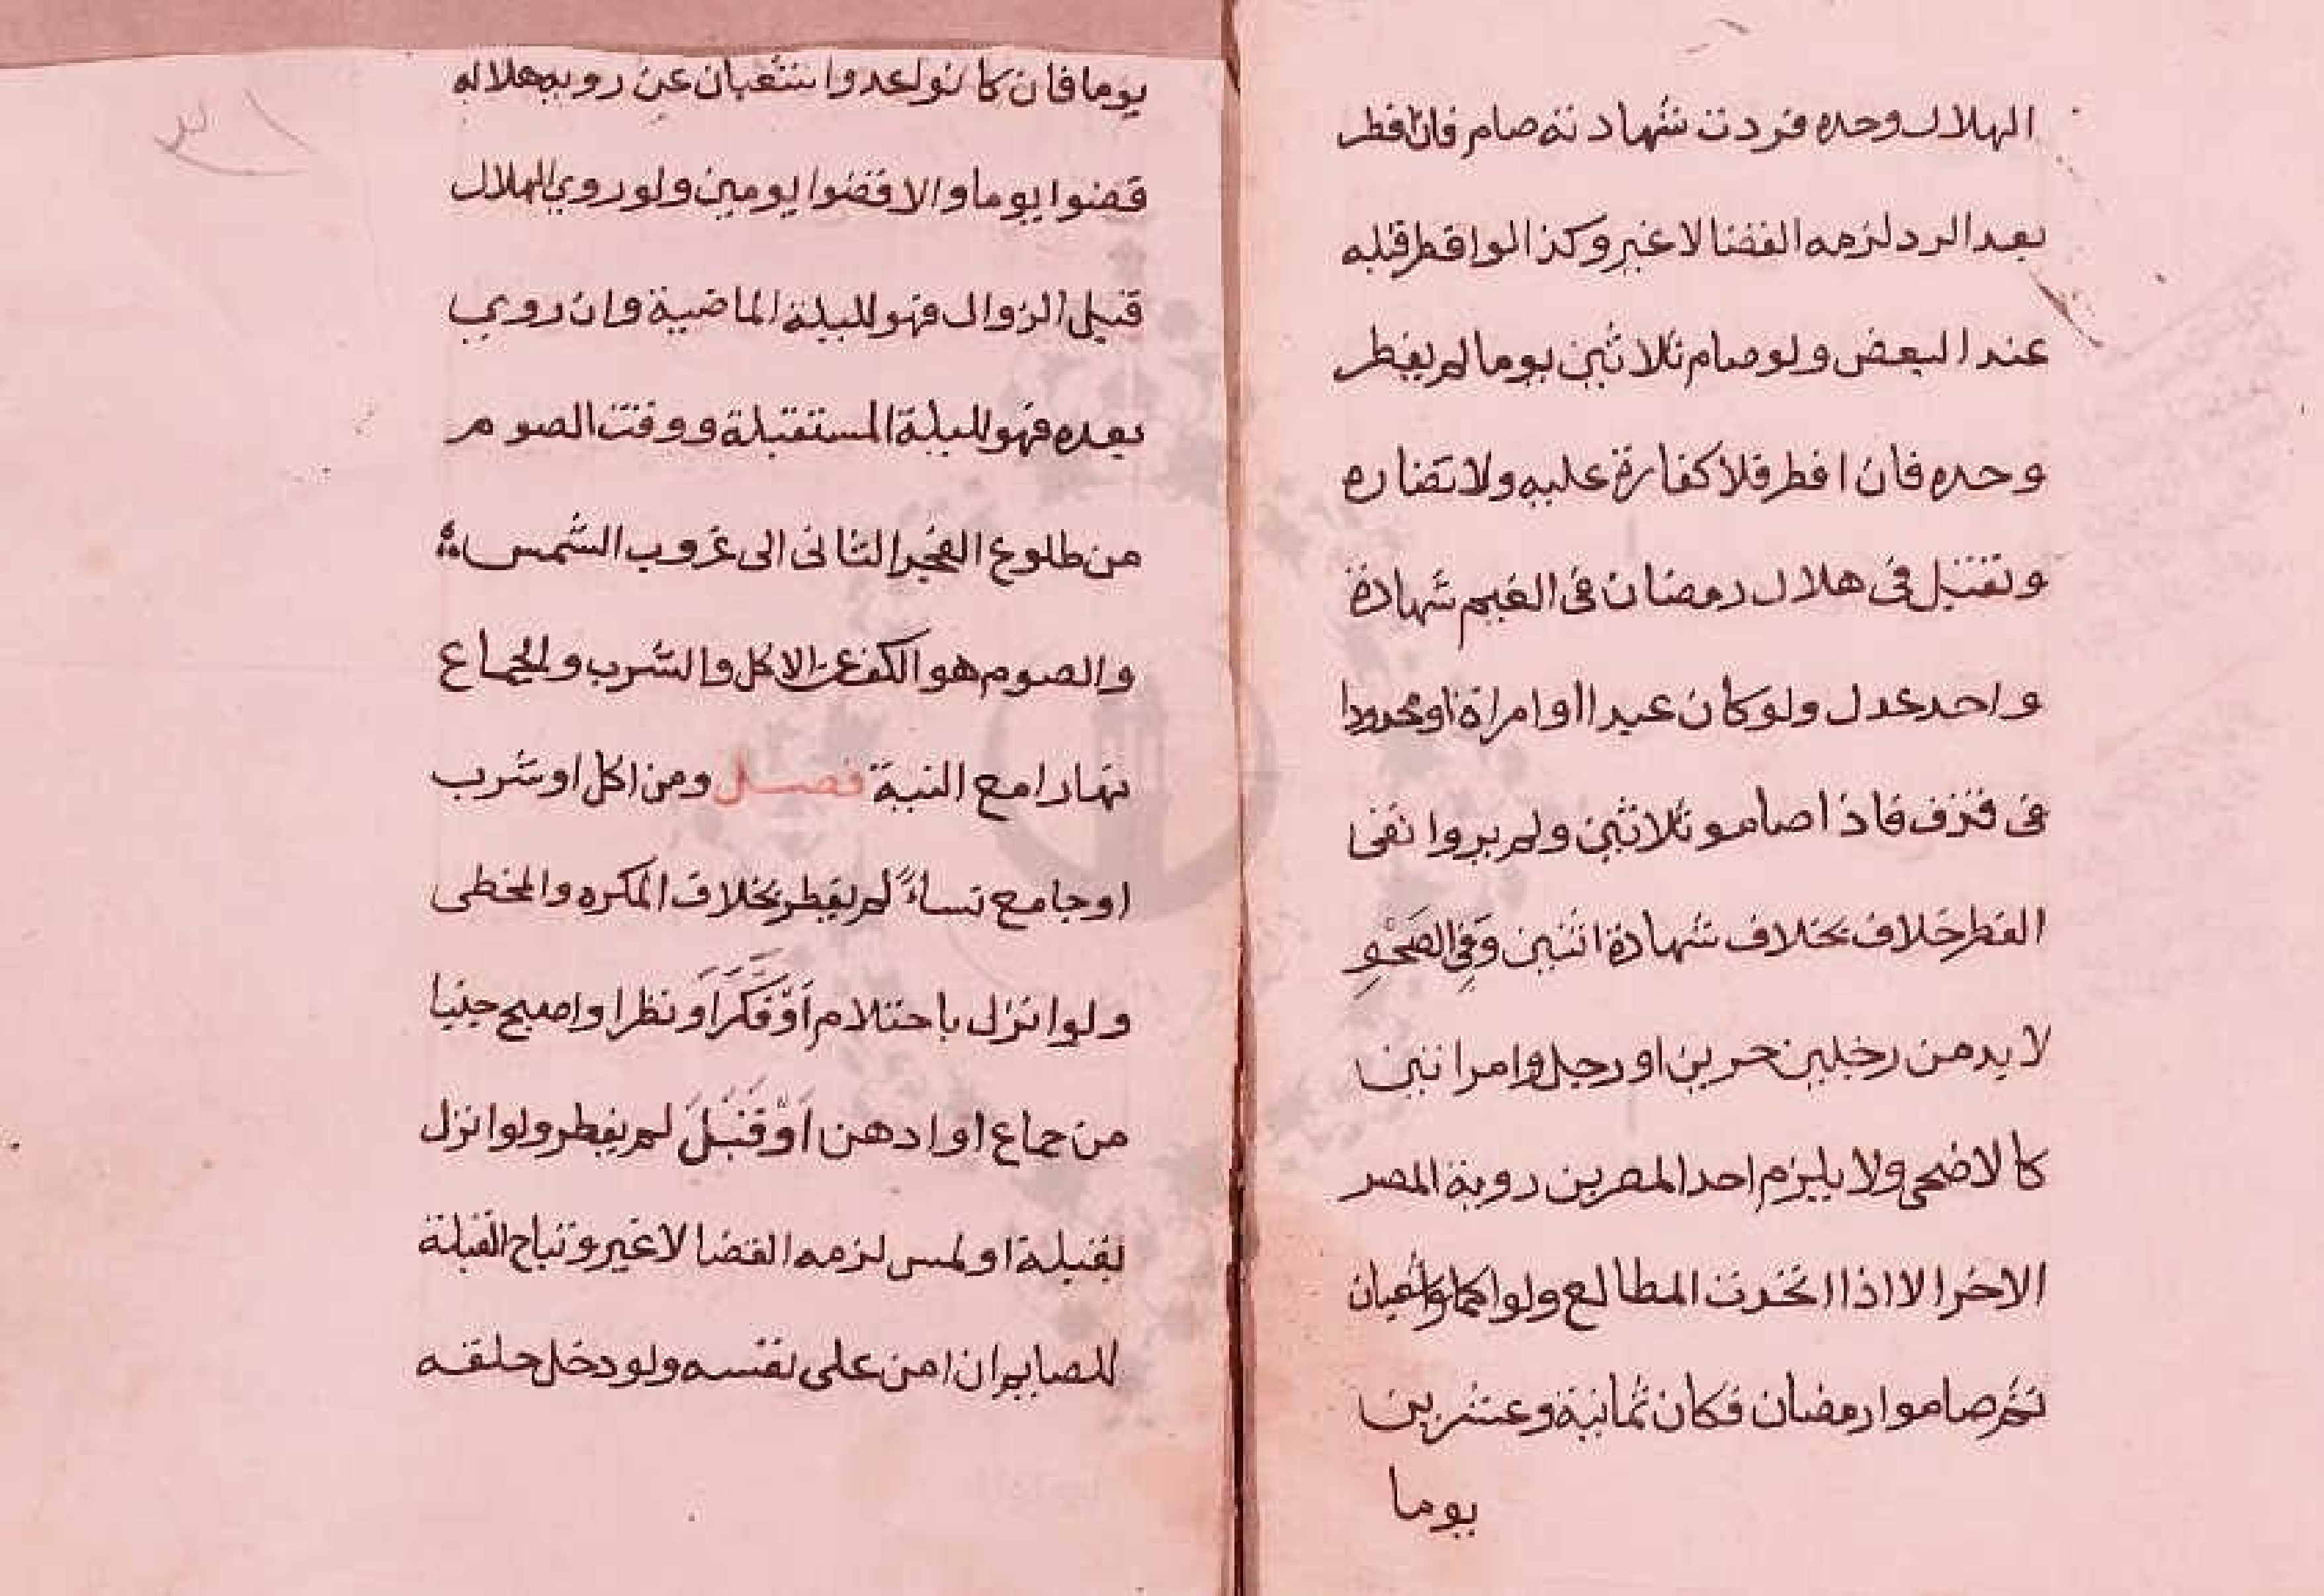 الهلال وحده فردت شهادته صام فان افطر
بعد الرد لزمه القضا لا غير وكذا لو افطر قبله
عند البعض ولو صام ثلاثين يوما لم يفطر
وحده فان افطر فلا كفارة عليه ولا
وتقبل في هلال رمضان في الغيم شهادة
واحد عدل ولو كان عبدا او امراة او محدودا
في قذف فاذا صامو ثلاثين ولم يروا ففى
الفطر خلاف بخلاف شهادة اثنين وَفِي الصَحْوِ
لا بد من رجلين حرين او رجل وامراتين
كالاضحى ولا يلزم احد المصرين روية المصر
الاخر الا اذا اتحدت المطالع ولو اكملوا شعبان
ثم صاموا رمضان فكان ثمانية وعشرين
يوما
يوما فان كانو عدوا شعبان عن روية هلاله
قضوا يوما والا قضوا يومين ولو روي الهلال
قبل الزوال فهو لليلة الماضية وان روي
بعده فهو لليلة المستقبلة ووقت الصوم
من طلوع الفجر الثانى الى غروب الشمس
والصوم هو الكف عن الاكل والشرب والجماع
نهارا مع النية فصل ومن اكل او شرب
او جامع لم يفطر بخلاف المكره والمخطى
ولو انزل باحتلام اَوْ فَكَّرَ اَو نظر او اصبح جنبا
من جماع او ادهن اَوْ قَبَّلَ لم يفطر ولو انزل
بقبلة او لمس لزمه القضا لا غير وتباح القبلة
للصايم ان امن على نفسه ولو دخل حلقه